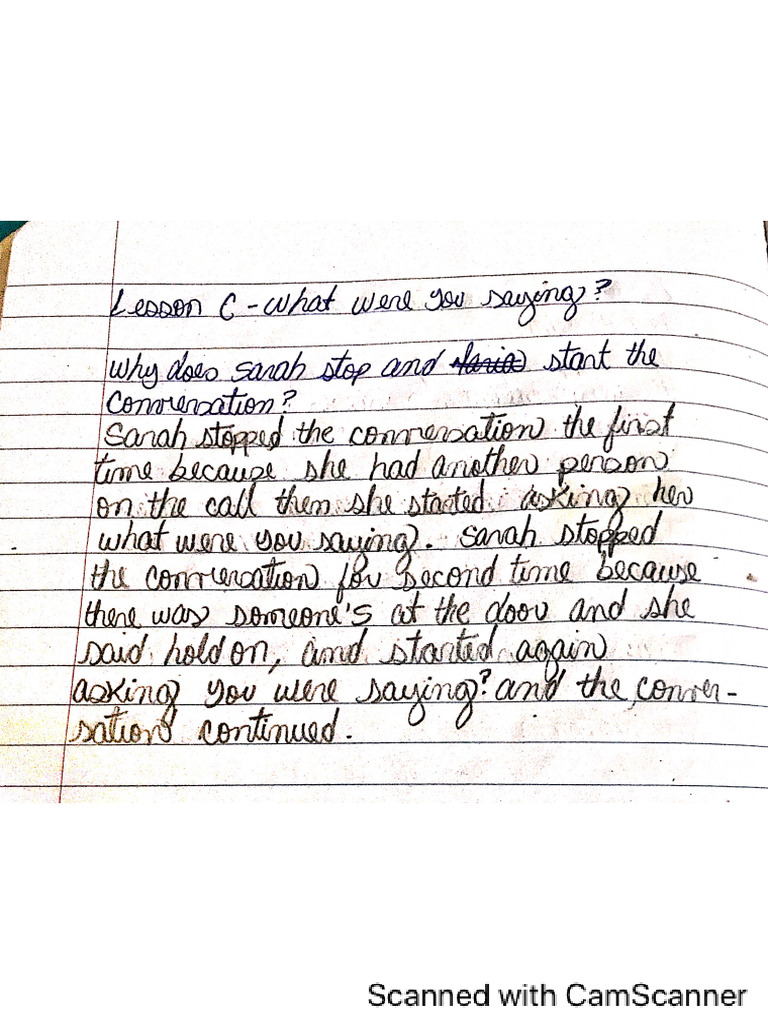 Lesson C - What were you saying?
Why does Sarah stop and start the
conversation?
Sarah stopped the conversation the first
time because she had another person
on the call then she started asking her
what were you saying. Sarah stopped
the conversation for second time because
there was someone's at the door and she
said hold on, and started again
asking you were saying? and the conver-
sation continued.
Scanned with CamScanner